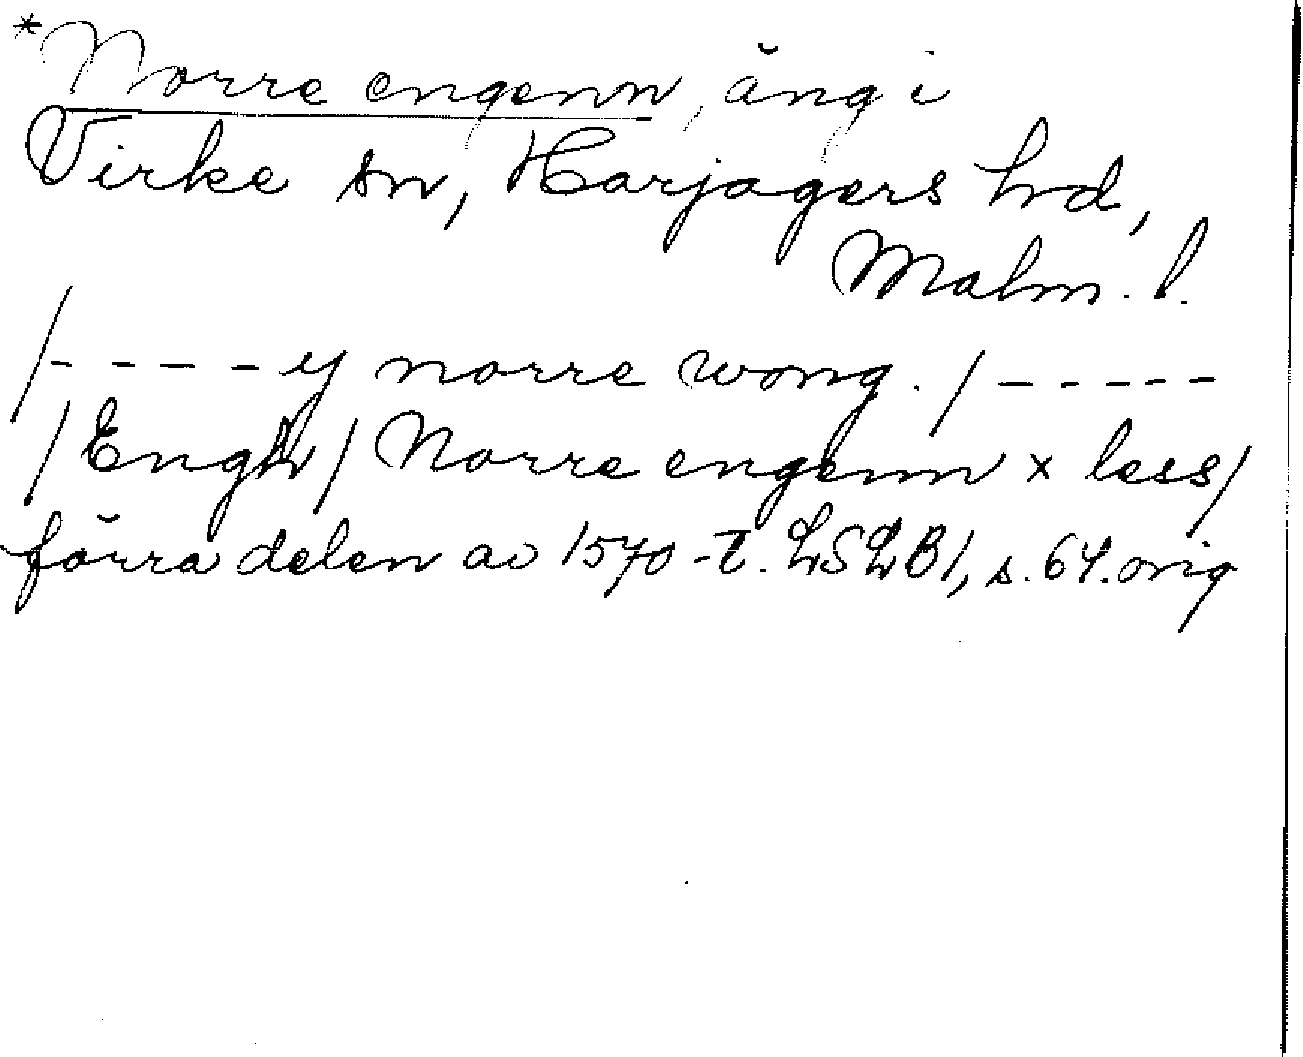 *Norre engenn, äng i
Virke sn, Harjagers hd,
Malm. l.
/- - - - - y norre wong. / - - - - -
/Engh/ Norre engenn x less/
förra delen av 1570-t. LSLB1, s. 64. orig